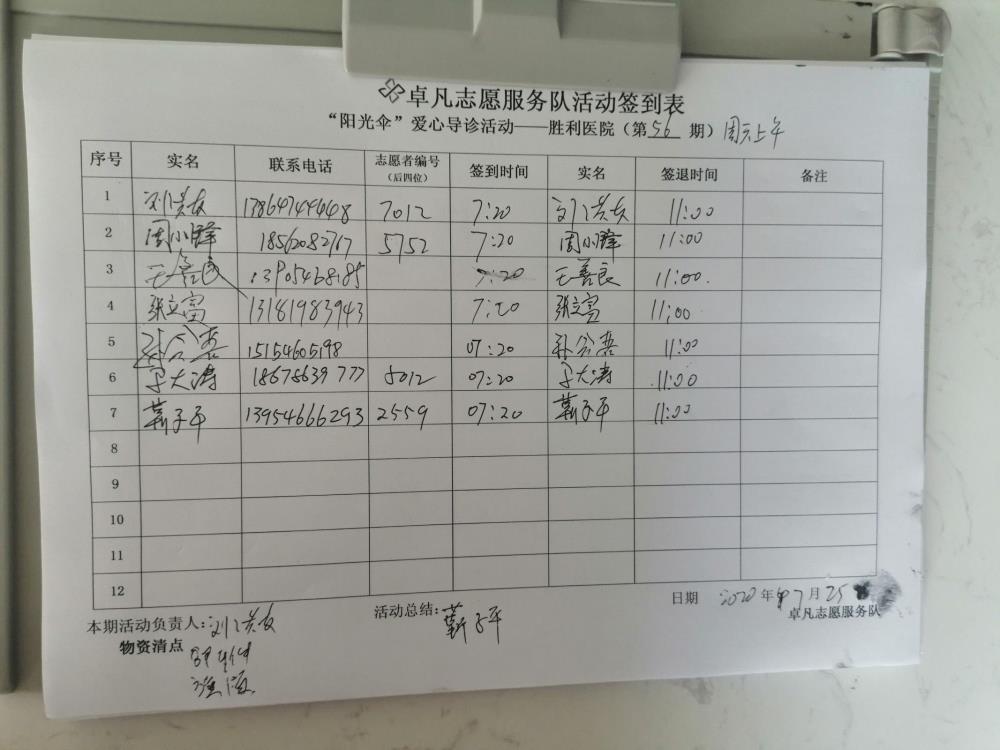 卓凡志愿服务队活动签到表
“阳光伞”爱心导诊活动——胜利医院（第56期）周六上午
序号 实名 联系电话 志愿者编号（后四位） 签到时间 实名 签退时间 备注
1 刘洪友 13864744448 7012 7:20 刘洪友 11:00
2 周小峰 18562082767 5752 7:20 周小峰 11:00
3 王善良 13905468185 7:20 王善良 11:00
4 张立富 13181983943 7:20 张立富 11:00
5 孙公善 15154605198 07:20 孙公善 11:00
6 大涛 18678639777 5012 07:20 大涛 11:00
7 靳子平 13954666293 2559 07:20 靳子平 11:00
8
9
10
11
12
日期 2020年7月25
本期活动负责人：刘洪友 活动总结：靳子平 卓凡志愿服务队
物资清点